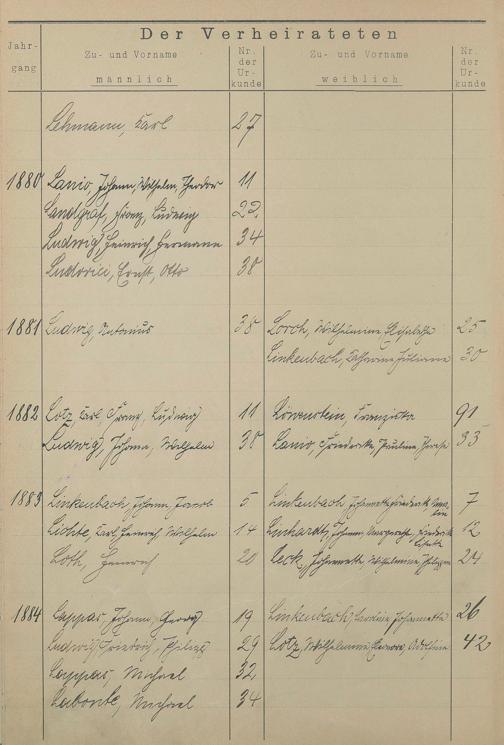 Der Verheirateten
Jahrgang
Zu- und Vorname
männlich
Nr. der Urkunde
Zu- und Vorname
weiblich
Nr. der Urkunde
Lehmann, Karl 27
1880 Lanio, Johann, Wilhelm, Theodor 11
Landgraf, Franz, Ludwig 22.
Ludwig, Heinrich, Hermann 34
Ludovici, Ernst, Otto 38
1881 Ludwig, Antonius 38 Lorch, Wilhelmine, 25
Linkenbach, Catharine Juliane 30
1882 Lotz, Carl, Franz, Ludwig 11 Löwenstein, Franziska 91
Ludwig, Johann, Wilhelm 30 Lanio, Friederike, Pauline, 93
1883 Linkenbach, Johann, Jacob 5 Linkenbach, Johannette 7
Lichte, Carl Heinrich Wilhelm 14 Linhardt, Johanna, Margarethe, 12
Loth, Heinrich 20 Leck, Johannette, Wilhelmine, 24
1884 Cappar, Johann, Georg 19 Linkenbach, Caroline Johannette 26
Ludwig, Friedrich, Philipp 29 Lotz, Wilhelmine, Adolfine 42
Cappar, Michael 32.
Labonte, Michael 34